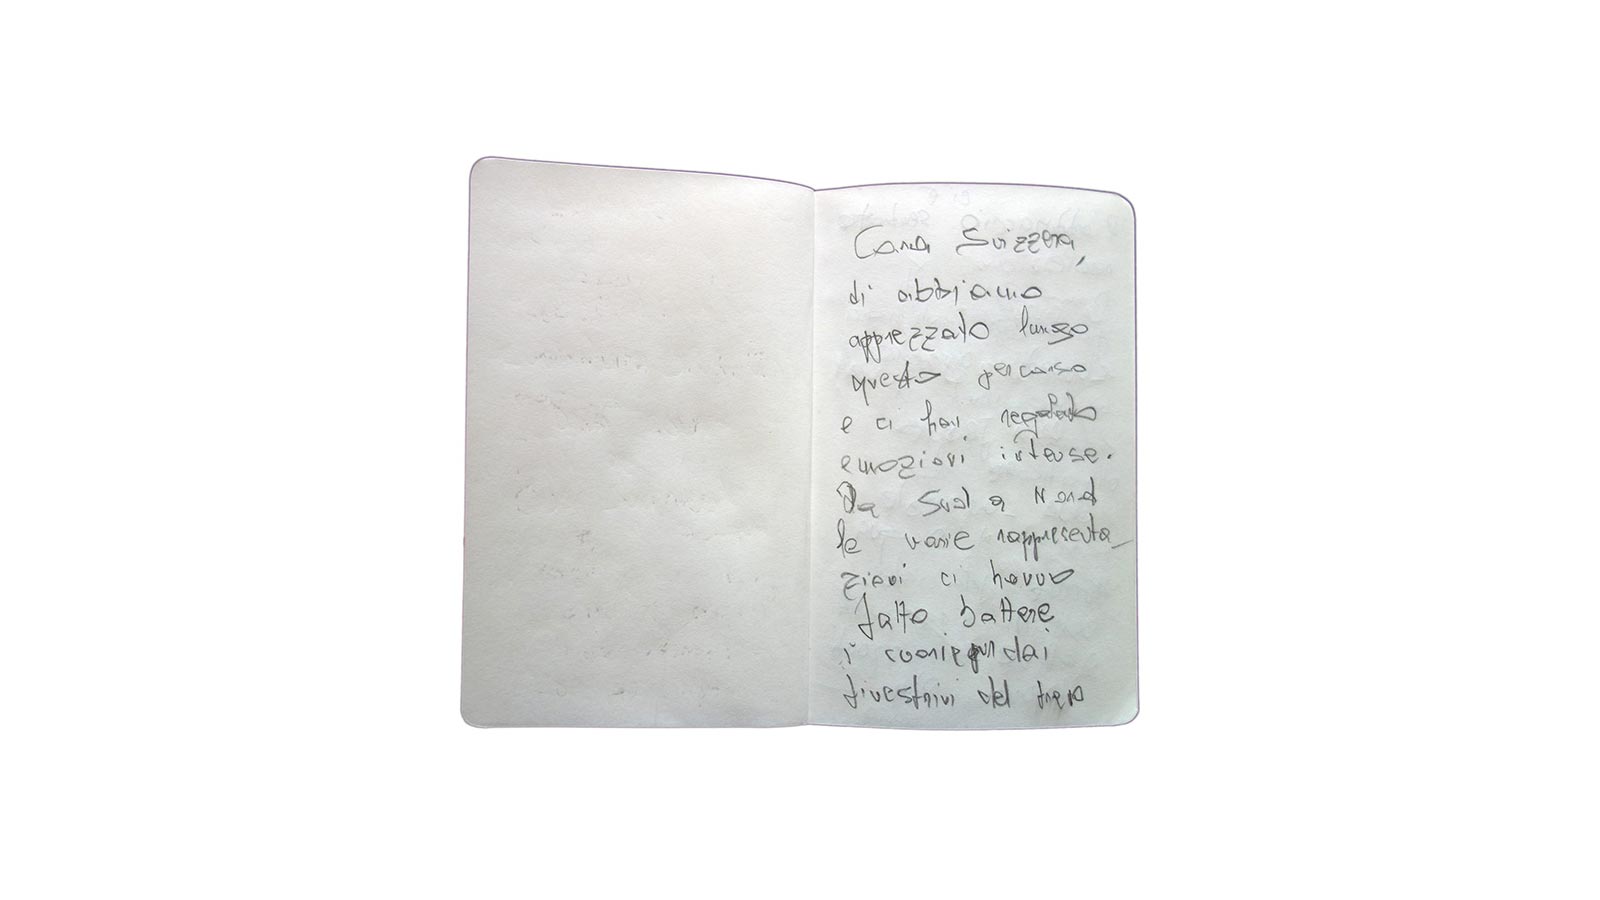 Cara Svizzera,
di abbiamo
apprezzato lungo
questo percorso
e ci hai regalato
emozioni intense.
Da Sud a Nord
le varie rappresenta_
zioni ci hanno
fatto battere
i cuori e dai
finestrini del treno